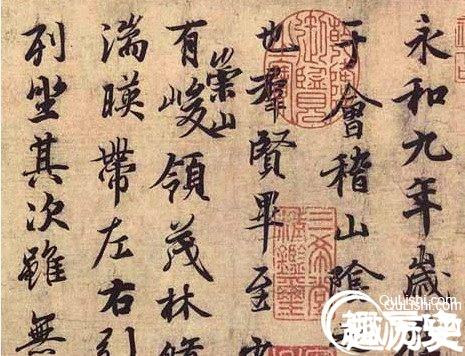 永和九年歲
于會稽山陰
也羣賢畢至
有崇山峻領茂林
湍暎帶左右引
列坐其次雖無
三希堂
QuLishi.com
趣历史